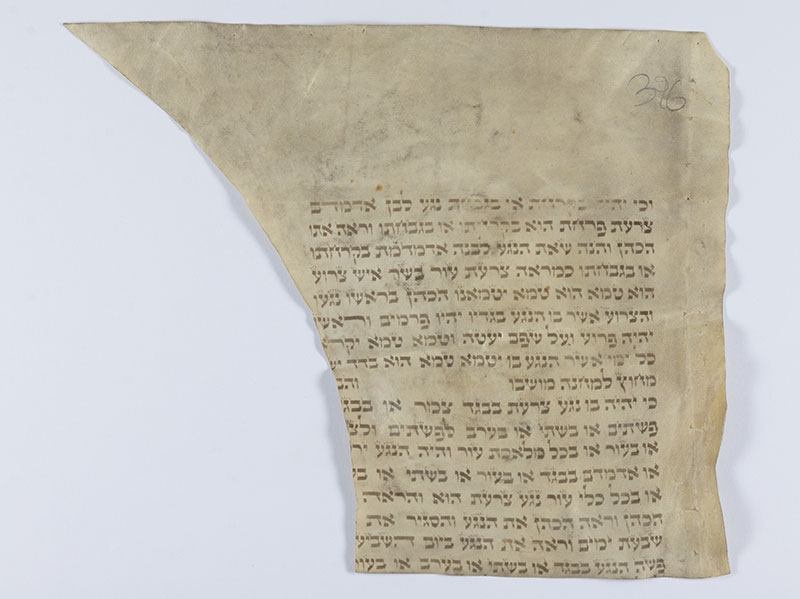 396
וכי יהיה בקרחת או בגבחת נגע לבן אדמדם
צרעת פרחת הוא בקרחתו או בגבחתו וראה אתו
הכהן והנה שאת הנגע לבנה אדמדמת בקרחתו
או בגבחתו כמראה צרעת עור בשר איש צרוע
הוא טמא הוא טמא יטמאנו הכהן בראשו נגעו
והצרוע אשר בו הנגע בגדיו יהיו פרמים וראש
יהיה פרוע ועל שפם יעטה וטמא טמא יקרא
כל ימי אשר הנגע בו יטמא טמא הוא בדד יש
מחוץ למחנה מושבו והב
כי יהיה בו נגע צרעת בבגד צמר או בבג
פשתים או בשתי או בערב לפשתים ולצ
או בעור או בכל מלאכת עור והיה הנגע יר
או אדמדם בבגד או בעור או בשתי או ב
או בכל כלי עור נגע צרעת הוא והראה
הכהן וראה הכהן את הנגע והסגיר את
שבעת ימים וראה את הנגע ביום השביעי
פשה הנגע בבגד או בשתי או בערב או בעור